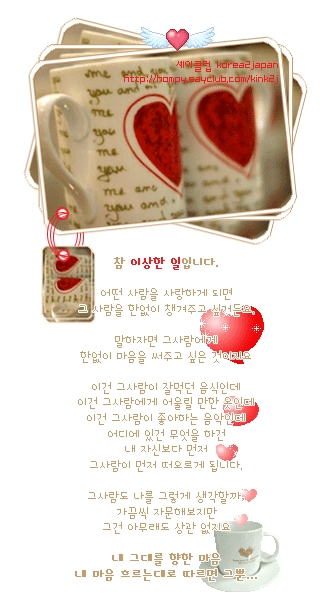 세이클럽 korea2japan
http://hompy.sayclub.com/kink2j
me and you
you and
me
you
you
me and
you
참 이상한 일입니다.
어떤 사람을 사랑하게 되면
그 사람을 한없이 챙겨주고 싶거든요.
말하자면 그사람에게
한없이 마음을 써주고 싶은 것이지요
이건 그사람이 잘먹던 음식인데
이건 그사람에게 어울릴 만한 옷인데
이건 그사람이 좋아하는 음악인데
어디에 있건 무엇을 하건
내 자신보다 먼저
그사람이 먼저 떠오르게 됩니다.
그사람도 나를 그렇게 생각할까,
가끔씩 자문해보지만
그건 아무래도 상관 없지요
내 그대를 향한 마음
내 마음 흐르는대로 따르면 그뿐...